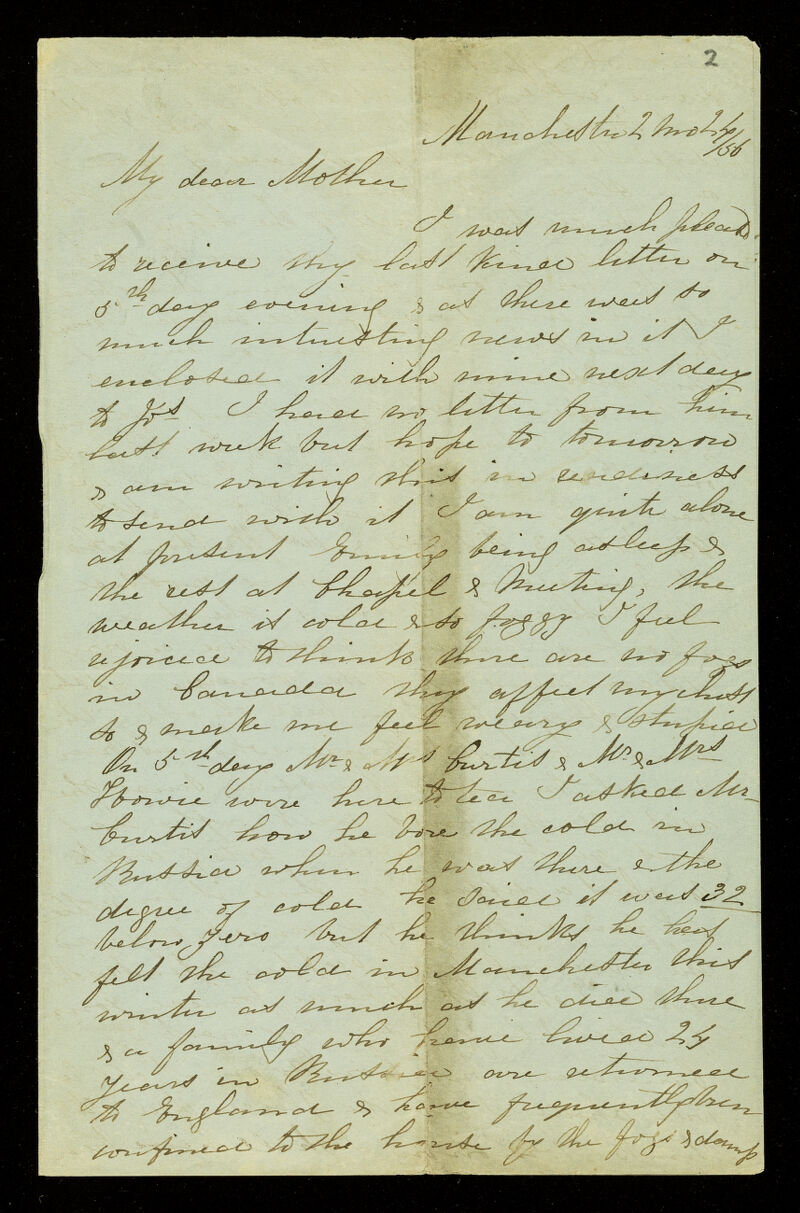 2
Manchester 2 mo 24/56
My dear Mother
I was much pleas'd
to receive thy last kind letter on
5th day evening & as there was so
much interesting news in it I
enclosed it with mine next day
to Jos I had no letter from him
last week but hope to tomorrow
& am writing this in readiness
to send with it I am quite alone
at present Emily being asleep &
the rest at Chapel & Meeting, the
weather is cold & so foggy I feel
rejoiced to think there are no fogs
in Canada they affect my chest
so & make me feel weary & stupid
On 5th day Mr & Mrs Curtis & Mr & Mrs
Howie were here to tea I asked Mr
Curtis how he bore the cold in
Russia when he was there & the
degree of cold he said it was 32
below zero but he thinks he has
felt the cold in Manchester this
winter as much as he did there
& a family who have lived 24
years in Russia are returned
to England & have frequently been
confined to the house by the fogs & damp